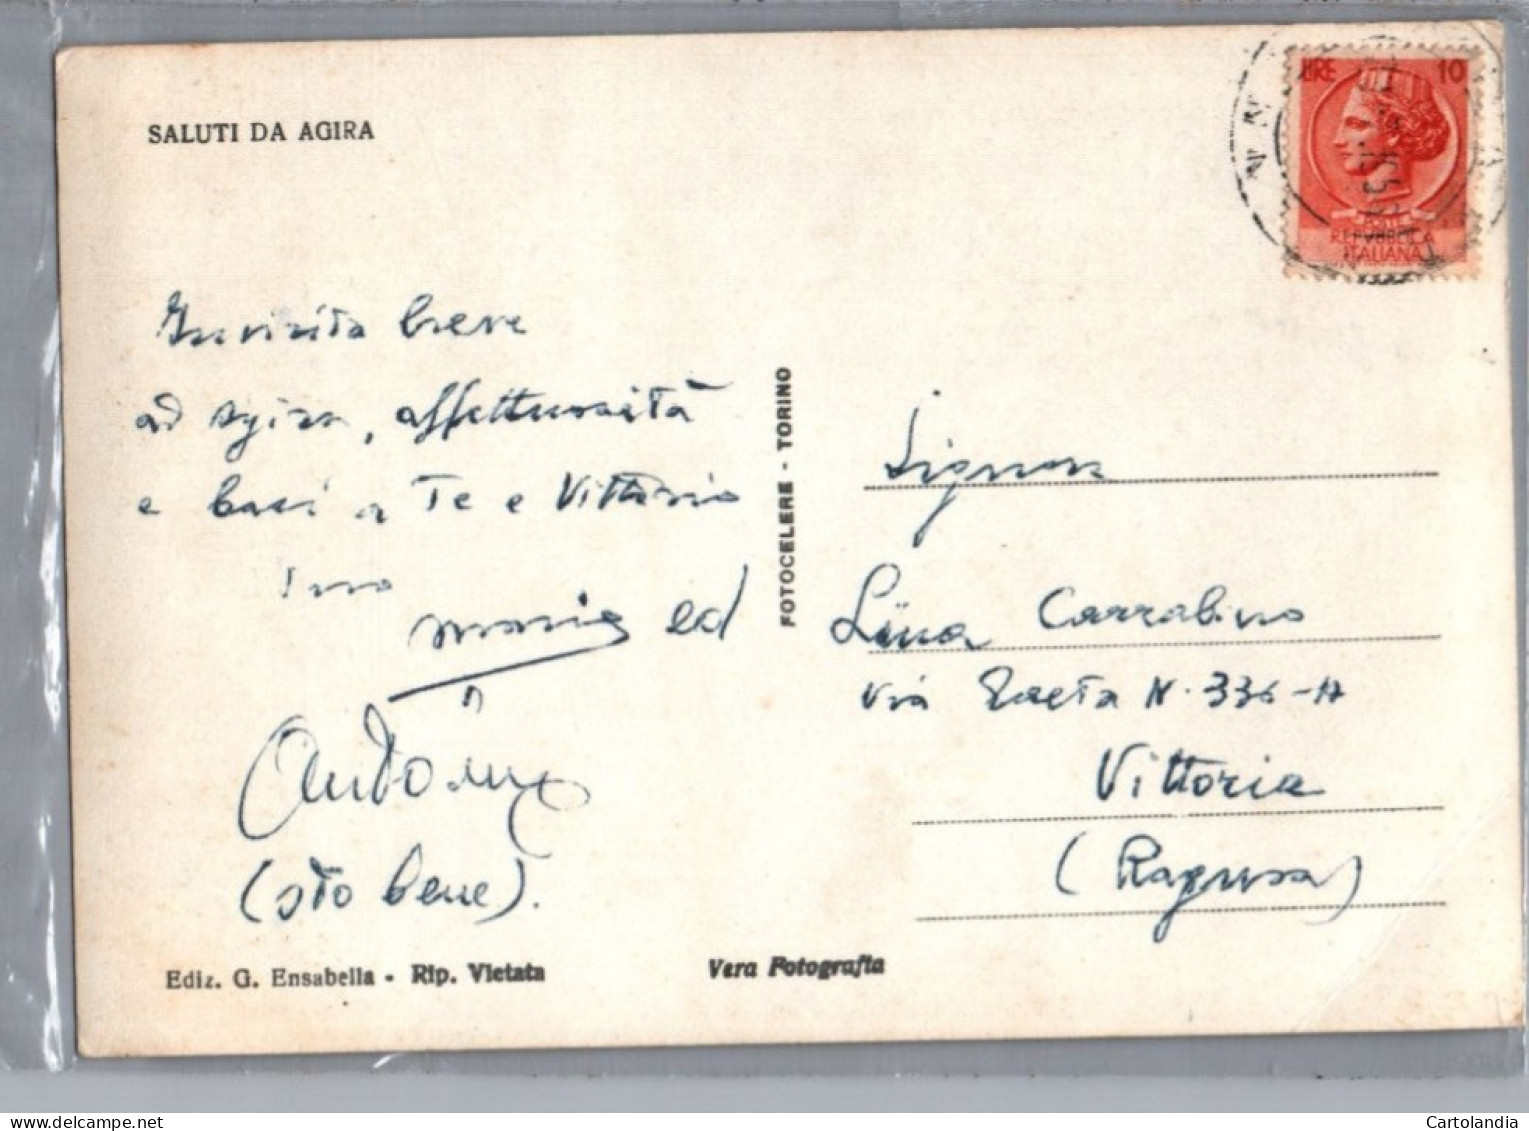 SALUTI DA AGIRA
LIRE 10
POSTE
REPVBBLICA
ITALIANA
In visita breve
ad Agira, affettuosità
e baci a Te e Vittorio
ed
(sto bene).
FOTOCELERE - TORINO
Lina Carrabino
Via Gaeta N. 336-A
Vittoria
(Ragusa)
Ediz. G. Ensabella - Rip. Vietata
Vera Fotografia
www.delcampe.net
Cartolandia